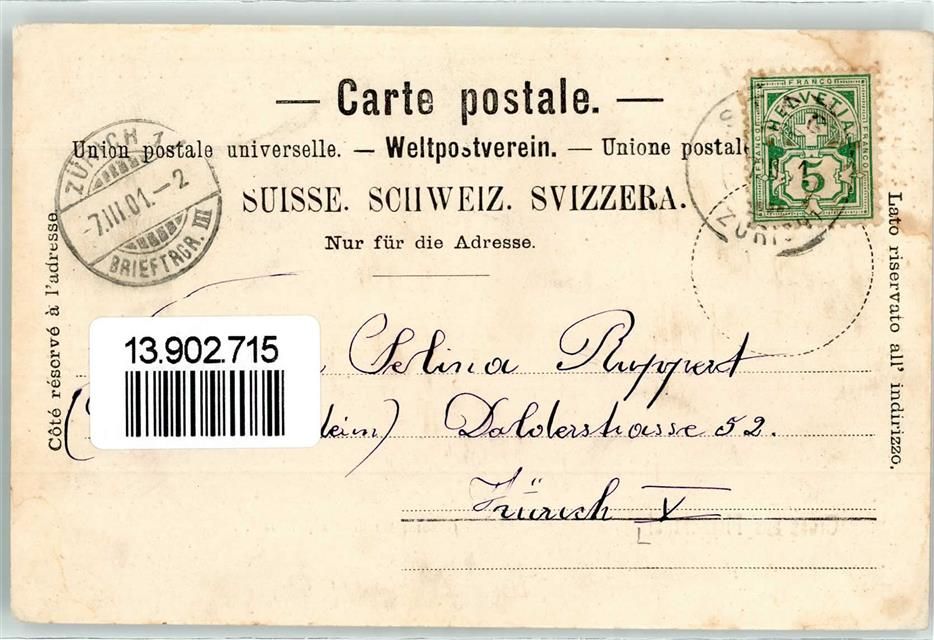 — Carte postale. —
Union postale universelle. — Weltpostverein. — Unione postale
SUISSE. SCHWEIZ. SVIZZERA.
Nur für die Adresse.
Côté résorvé à l'adresse.
Lato riservato all' indirizzo.
ZÜRICH 1
-7.III.01.-2
BRIEFTRGR. III
FRANCO
HELVETIA
FRANCO
FRANCO
5
ZÜRICH
13.902.715
Selina Ruppert
Dolderstrasse 52.
Zürich V